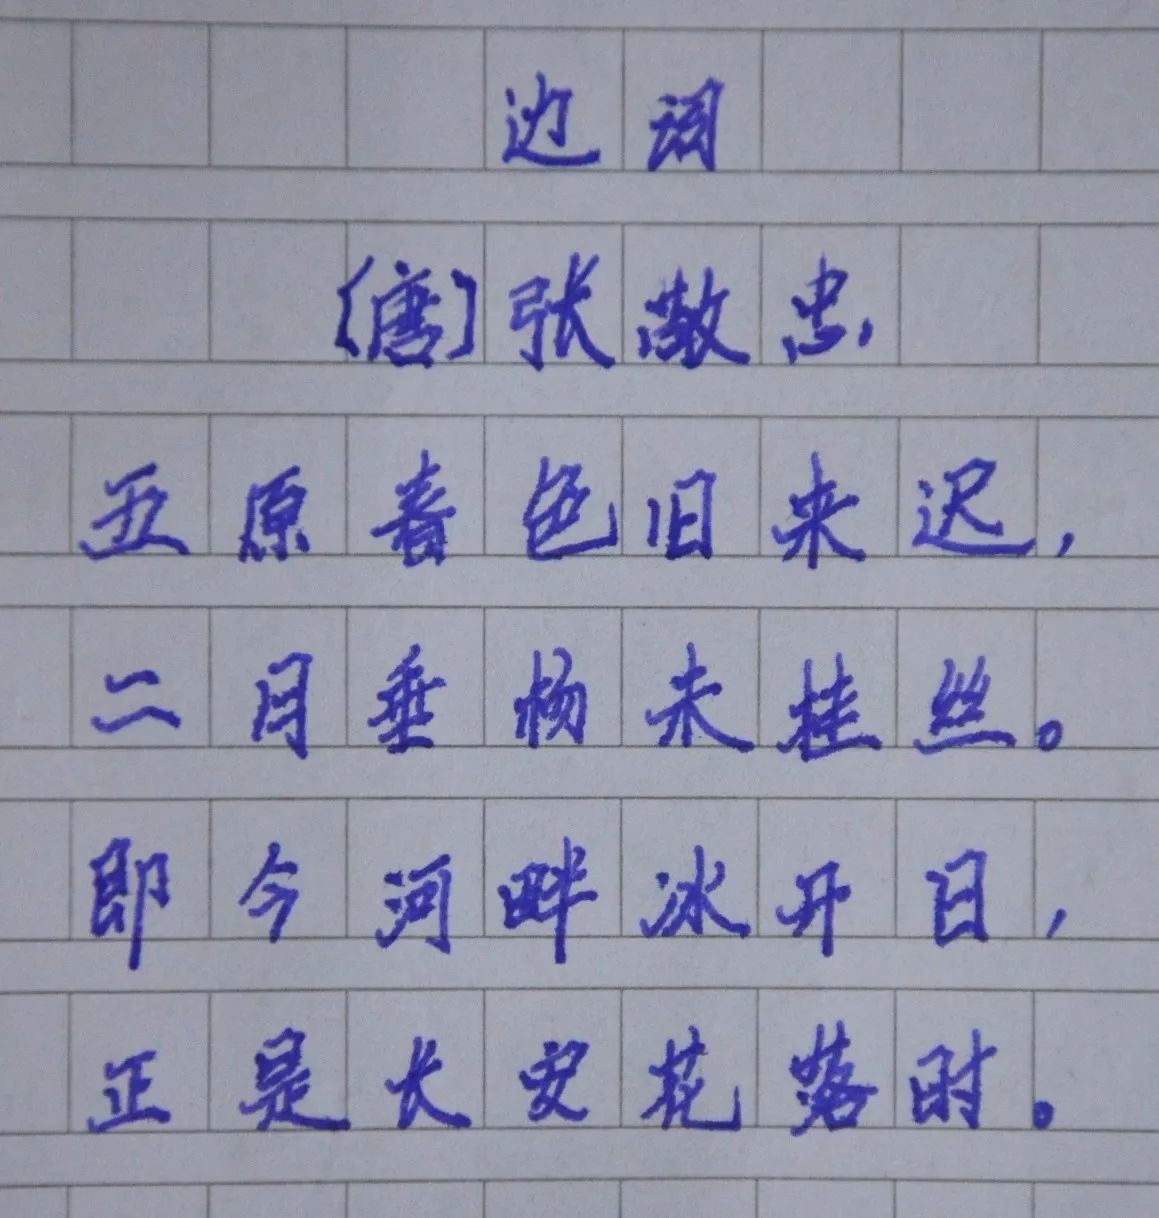 边词
〔唐〕张敬忠
五原春色旧来迟，
二月垂杨未挂丝。
即今河畔冰开日，
正是长安花落时。